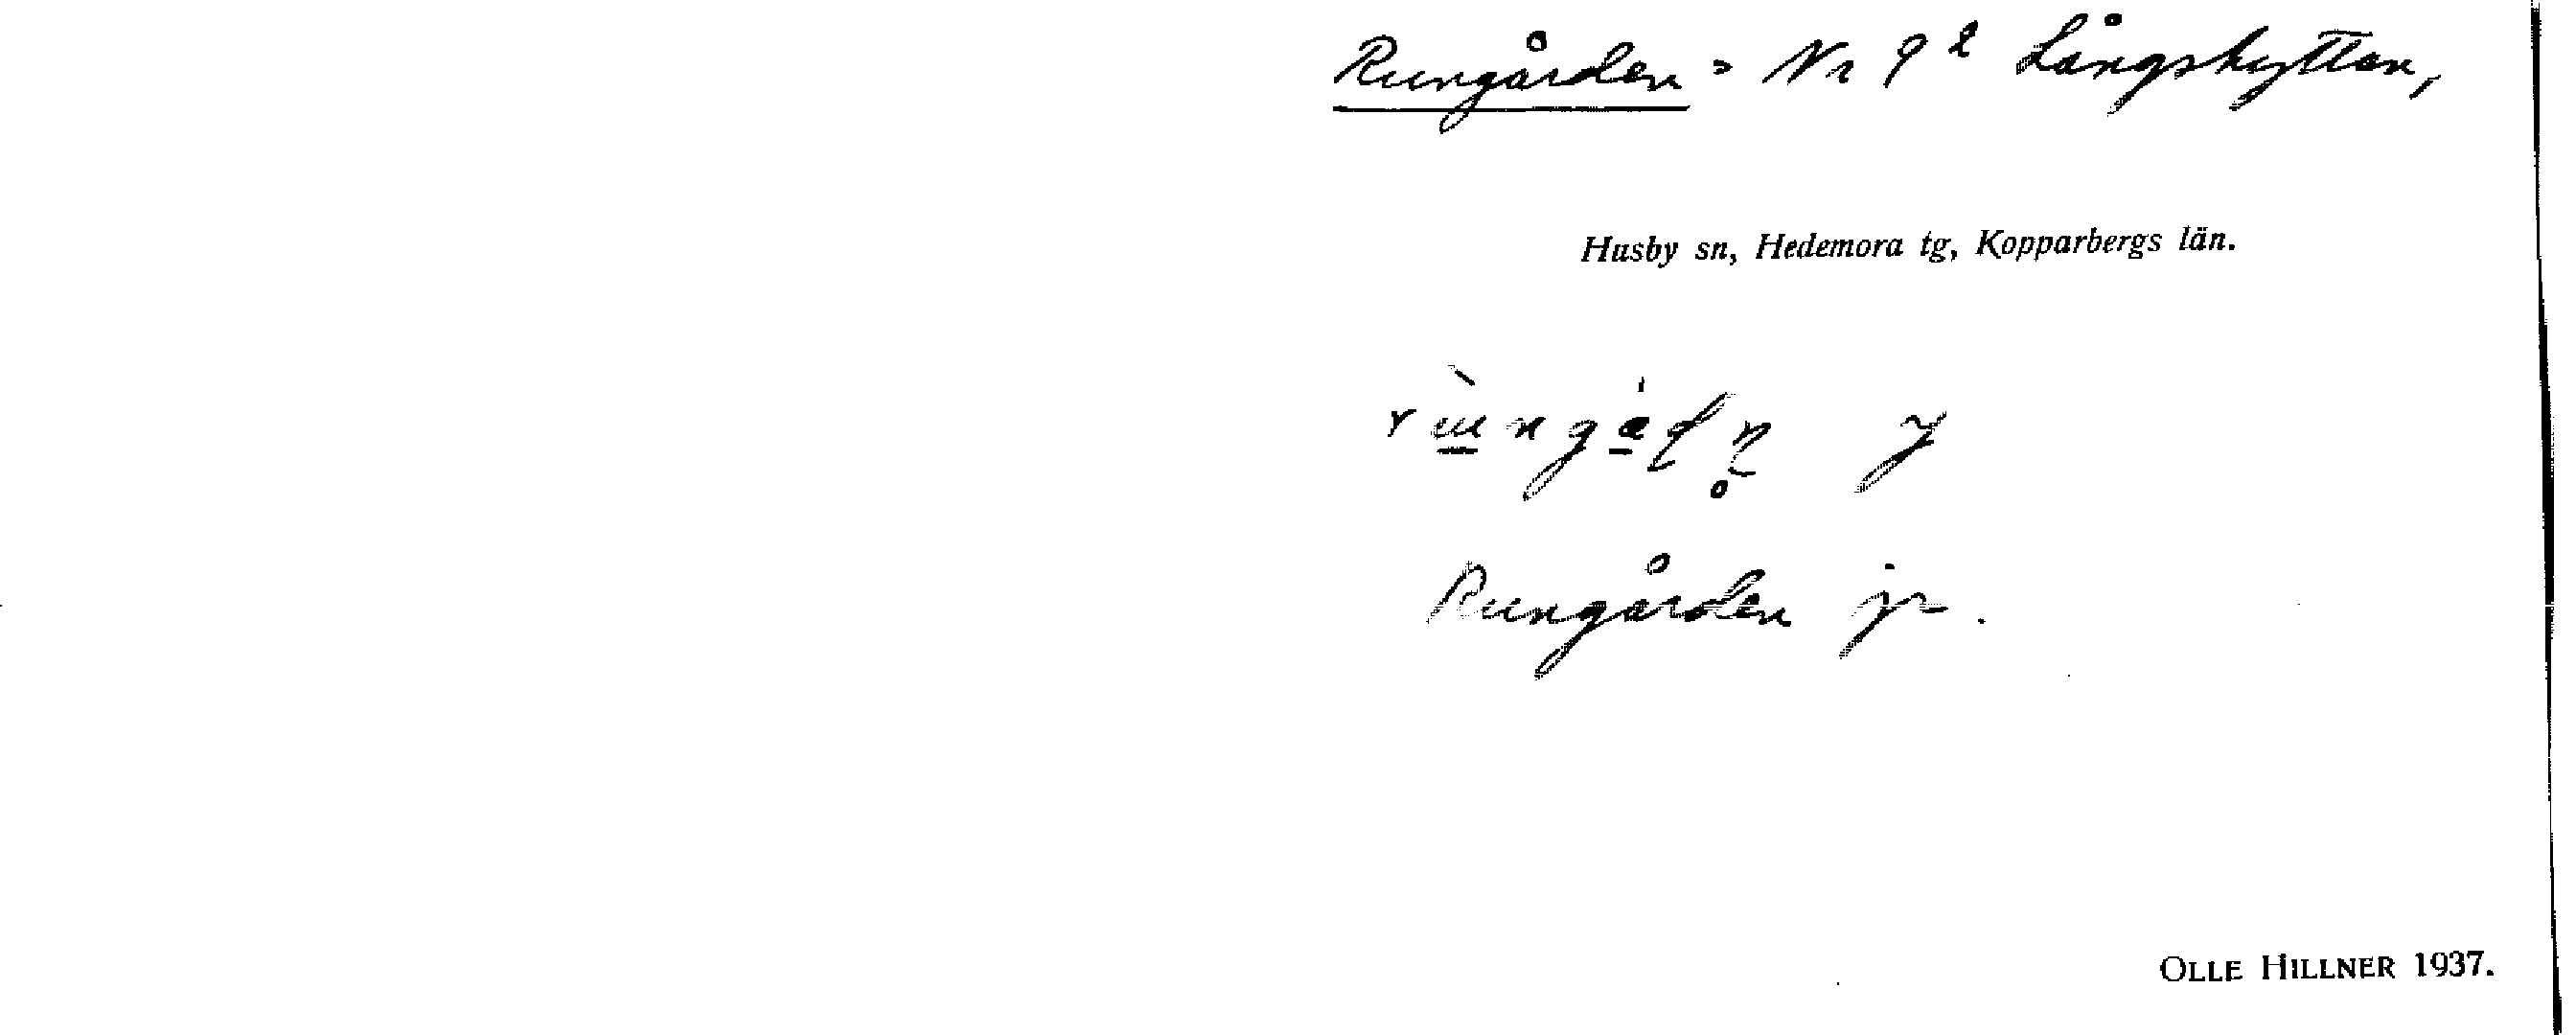 Rungården = Nr 9² Långshyttan,
Husby sn, Hedemora tg, Kopparbergs län.
Rungården jr.
OLLE HILLNER 1937.